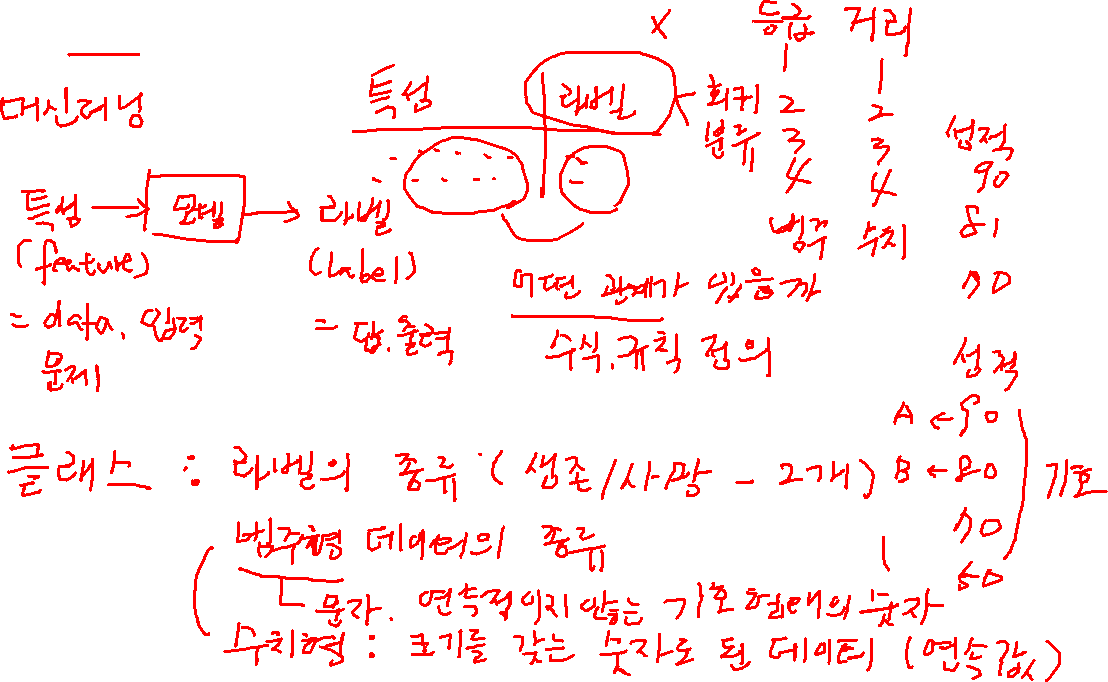 머신러닝
특성 → 모델 → 라벨
(feature)
(label)
= data, 입력
문제
= 답, 출력
특성 | 라벨
회귀
분류
어떤 관계가 있을까
수식, 규칙 정의
X
등급 거리
1 1
2 2
3 3
4 4
범주 수치
성적
90
81
70
성적
A ← 90
B ← 80
70
60
기호
클래스 : 라벨의 종류 (생존/사망 - 2개)
범주형 데이터의 종류
문자, 연속적이지 않는 기호 형태의 숫자
수치형 : 크기를 갖는 숫자로 된 데이터 (연속값)